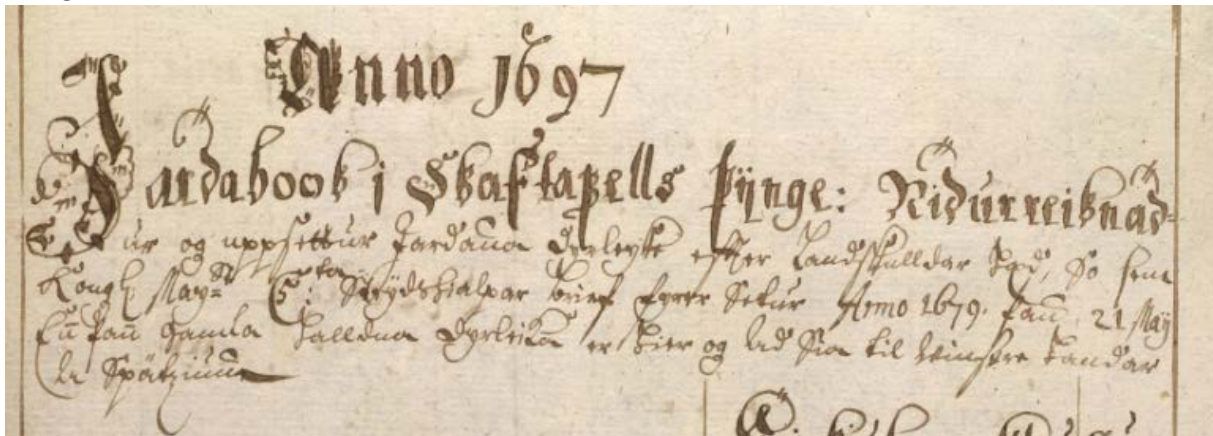 Anno 1697
Jardabook i Skaftafells þijnge: Nidurreiknad-
ur og uppsettur Jardanna dyrleyke epter Landskulldar hæd, so sem
Kongl May:tt 5:ta Strydshialpar brief fyrer setur Anno 1679. þann 21 Maij
Enn þann gamla kalldna dyrleika er hier og ad Sia til vinstre handar